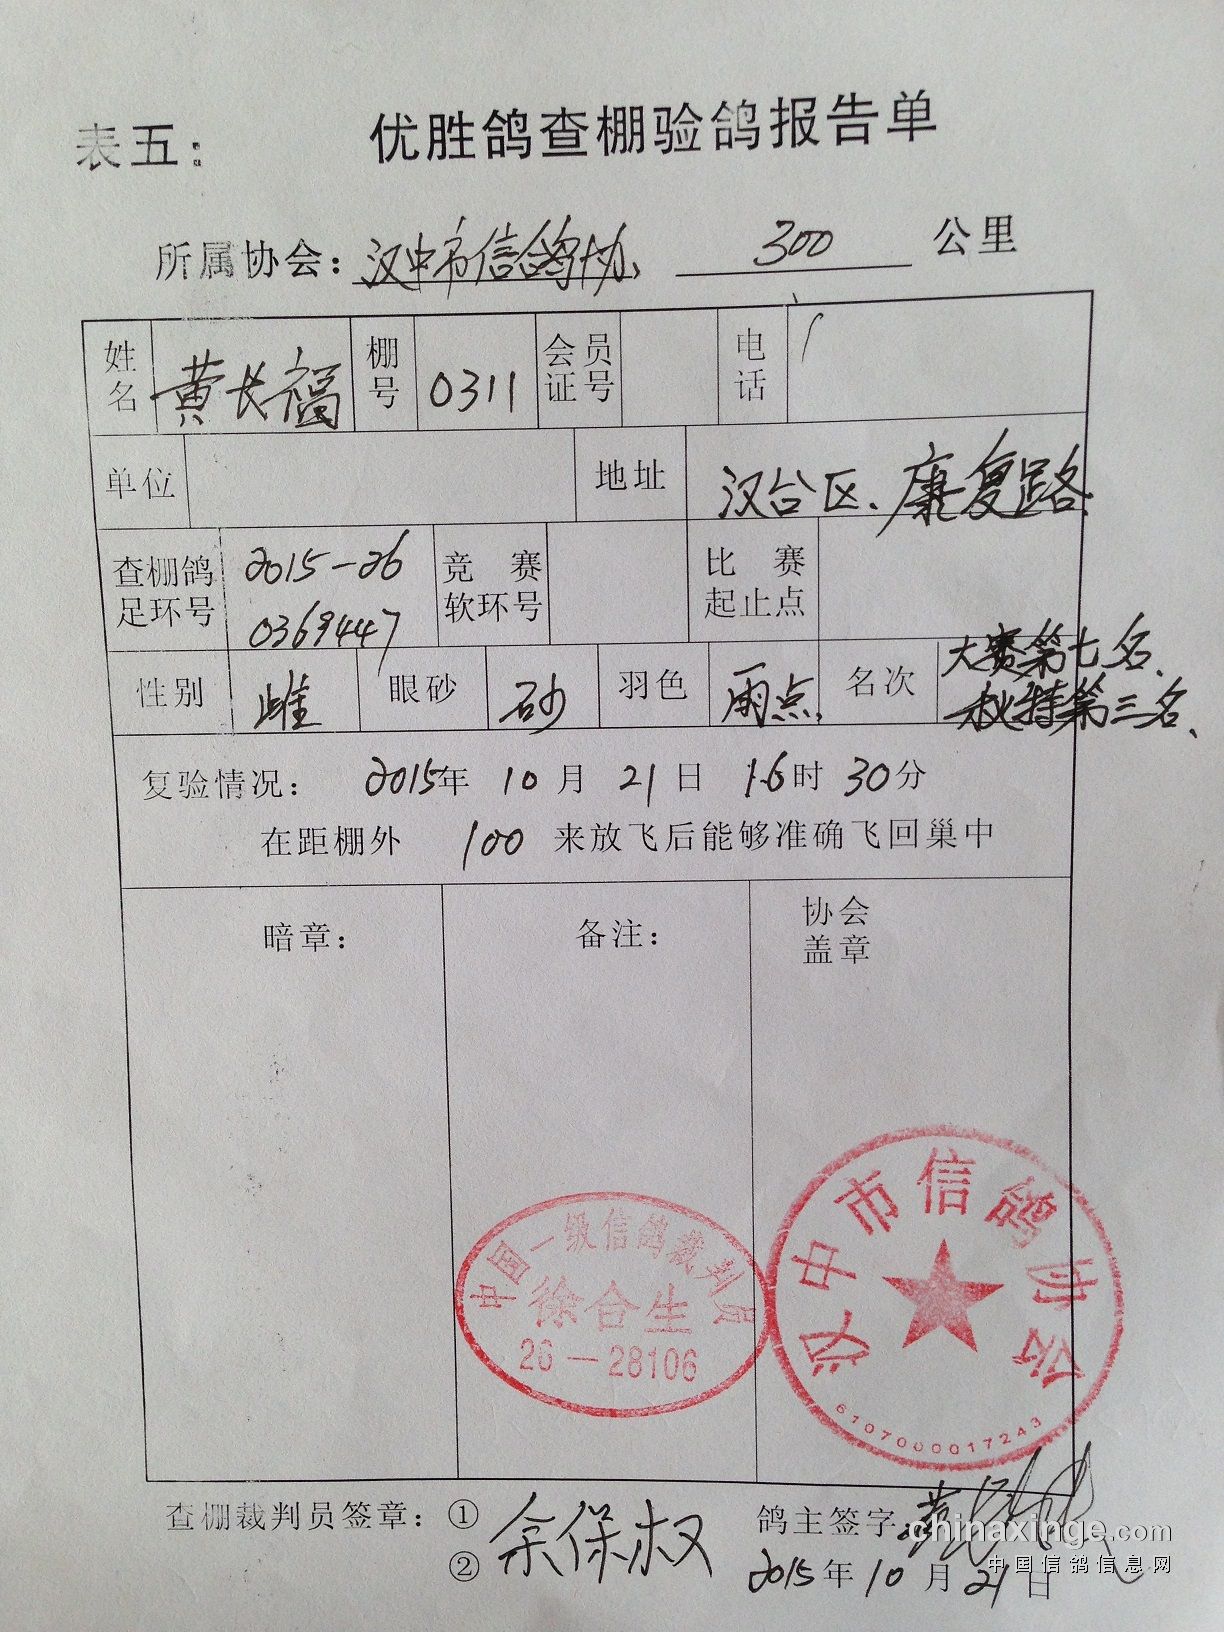 表五： 优胜鸽查棚验鸽报告单
所属协会：汉中市信鸽协 300 公里
姓名 黄长福 棚号 0311 会员证号 电话
单位 地址 汉台区、康复路
查棚鸽足环号 2015-26 0369447 竞赛软环号 比赛起止点
性别 雌 眼砂 砂 羽色 雨点 名次 大赛第七名、
秋特第三名、
复验情况： 2015年 10月 21日 16时 30分
在距棚外 100 来放飞后能够准确飞回巢中
暗章： 备注： 协会盖章
中国一级信鸽裁判员
徐合生
26—28106
汉中市信鸽协会
6107000017243
查棚裁判员签章：① ② 余保权
鸽主签字：
2015年 10月 21日
chinaxinge.com
中国信鸽信息网